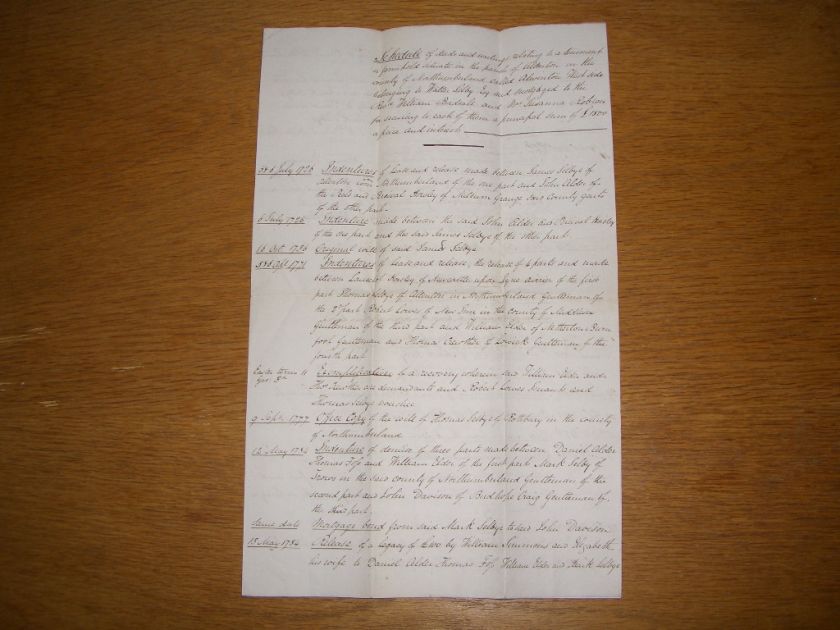 Schedule of deeds and writings relating to a tenement
or farmhold situate in the parish of Allenton in the
county of Northumberland called Alwenton West side
belonging to Walter Selby Esq and mortgaged to the
Revd William and Mrs Susanna Robson
for securing to each of them a principal sum of £1800
a piece and interest
5 & 6 July 1726 Indentures of lease and release made between James Selbye of
Allenton Northumberland of the one part and John Alder of
the and Percival Horsley of Milburn Grange said county gents
of the other part
6 July 1726 Indenture made between the said John Alder and Percival Horsley
of the one part and the said James Selbye of the other part
16 Oct. 1736 Original will of said James Selbye
5 & 6 Apl 1771 Indentures of lease and release, the release of 4 parts and made
between Lancelot Horsley of Newcastle upon Tyne of the first
part Thomas Selbye of Allenton in Northumberland Gentleman of
the 2d part Robert Lowes of New Inn in the county of Middlesex
Gentleman of the third part and William Elder of Netherton Burn
foot Gentleman and Thomas Crawther of Gentleman of the
fourth part
Easter term 11 Geo: 3d Exemplification of a recovery wherein said William Elder and
Thos Crawther are demandants and Robert Lowes tenant and
Thomas Selbye vouchee
9 Septr 1777 Office Copy of the will of Thomas Selbye of Rothbury in the county
of Northumberland
12 May 1784 Indenture of demise of three parts made between Daniel Alder
Thomas and William Elder of the first part Mark Selby of
Trows in the said county of Northumberland Gentleman of the
second part and John Davison of Birdhope Craig Gentleman of
the third part
Same date Mortgage bond from said Mark Selbye to said John Davison
13 May 1784 Release of a legacy of by William Simmons and Elizabeth
his wife to Daniel Alder Thomas William Elder and Mark Selbye